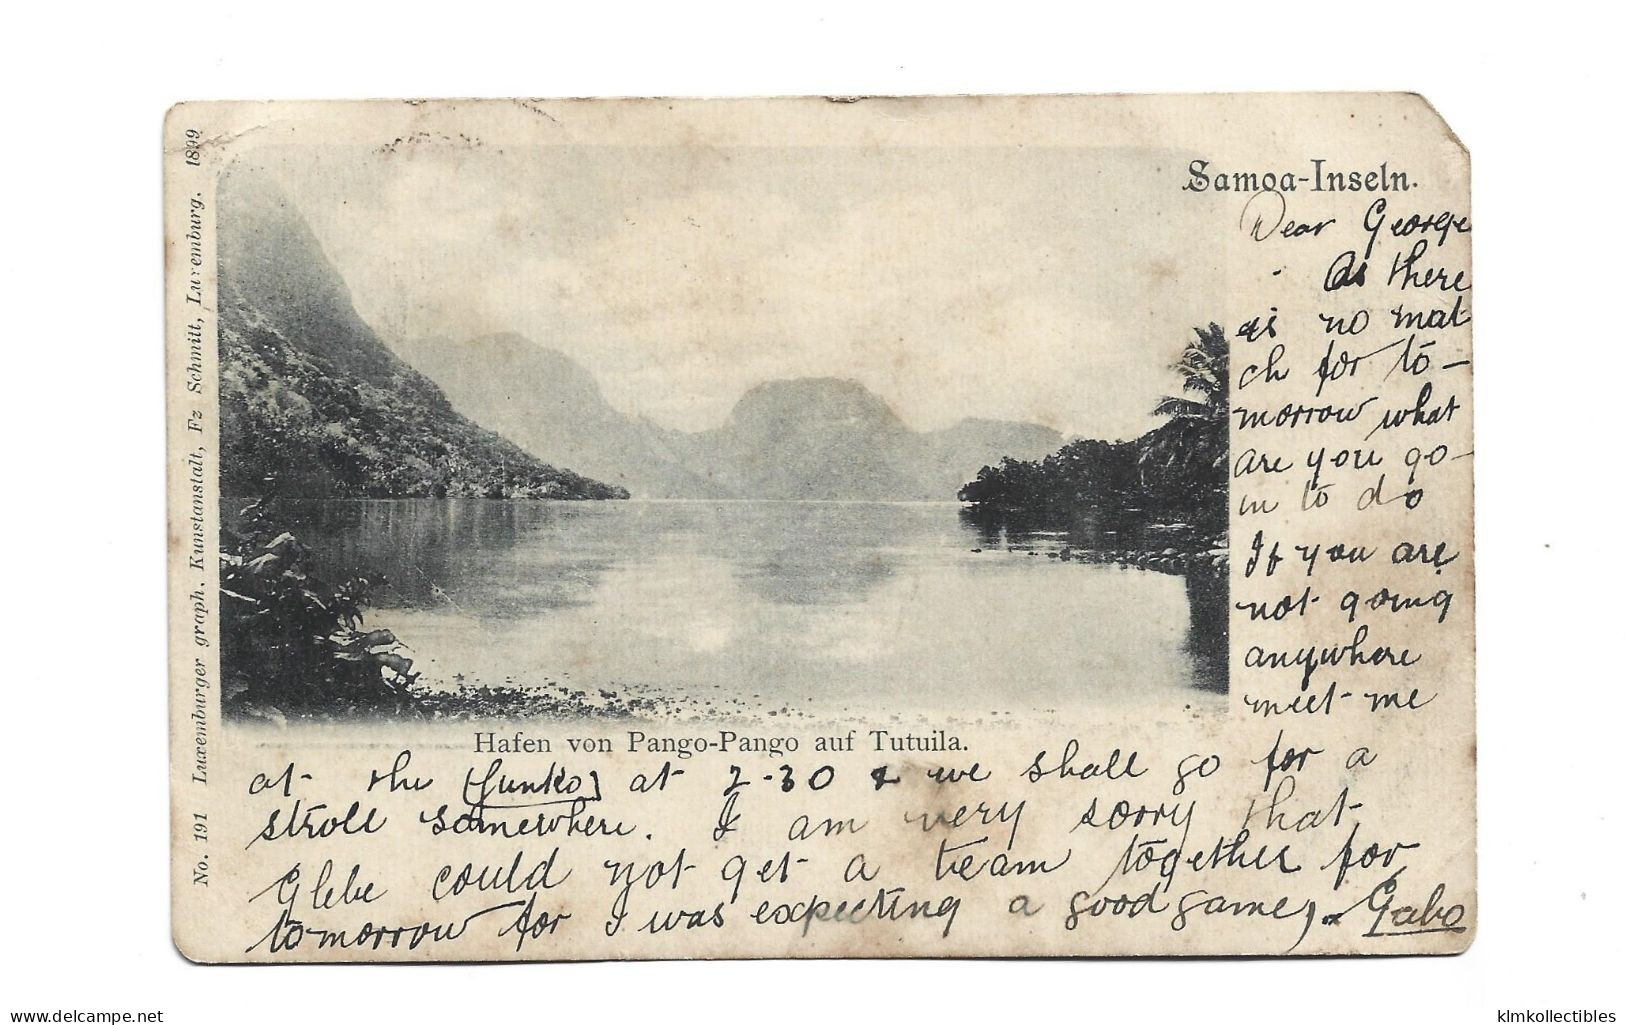 Samoa-Inseln.
Dear George
As there
is no mat
ch for to-
morrow what
are you go-
in to do
If you are
not going
anywhere
meet me
Hafen von Pango-Pango auf Tutuila.
at the (Junko) at 2-30 & we shall go for a
stroll somewhere. I am very sorry that
Glebe could not get a team together for
tomorrow for I was expecting a good game,. Gabo
No. 191 Luxemburger graph. Kunstanstalt, Fz Schmitt, Luxemburg. 1899
delcampe.net
klmkollectibles